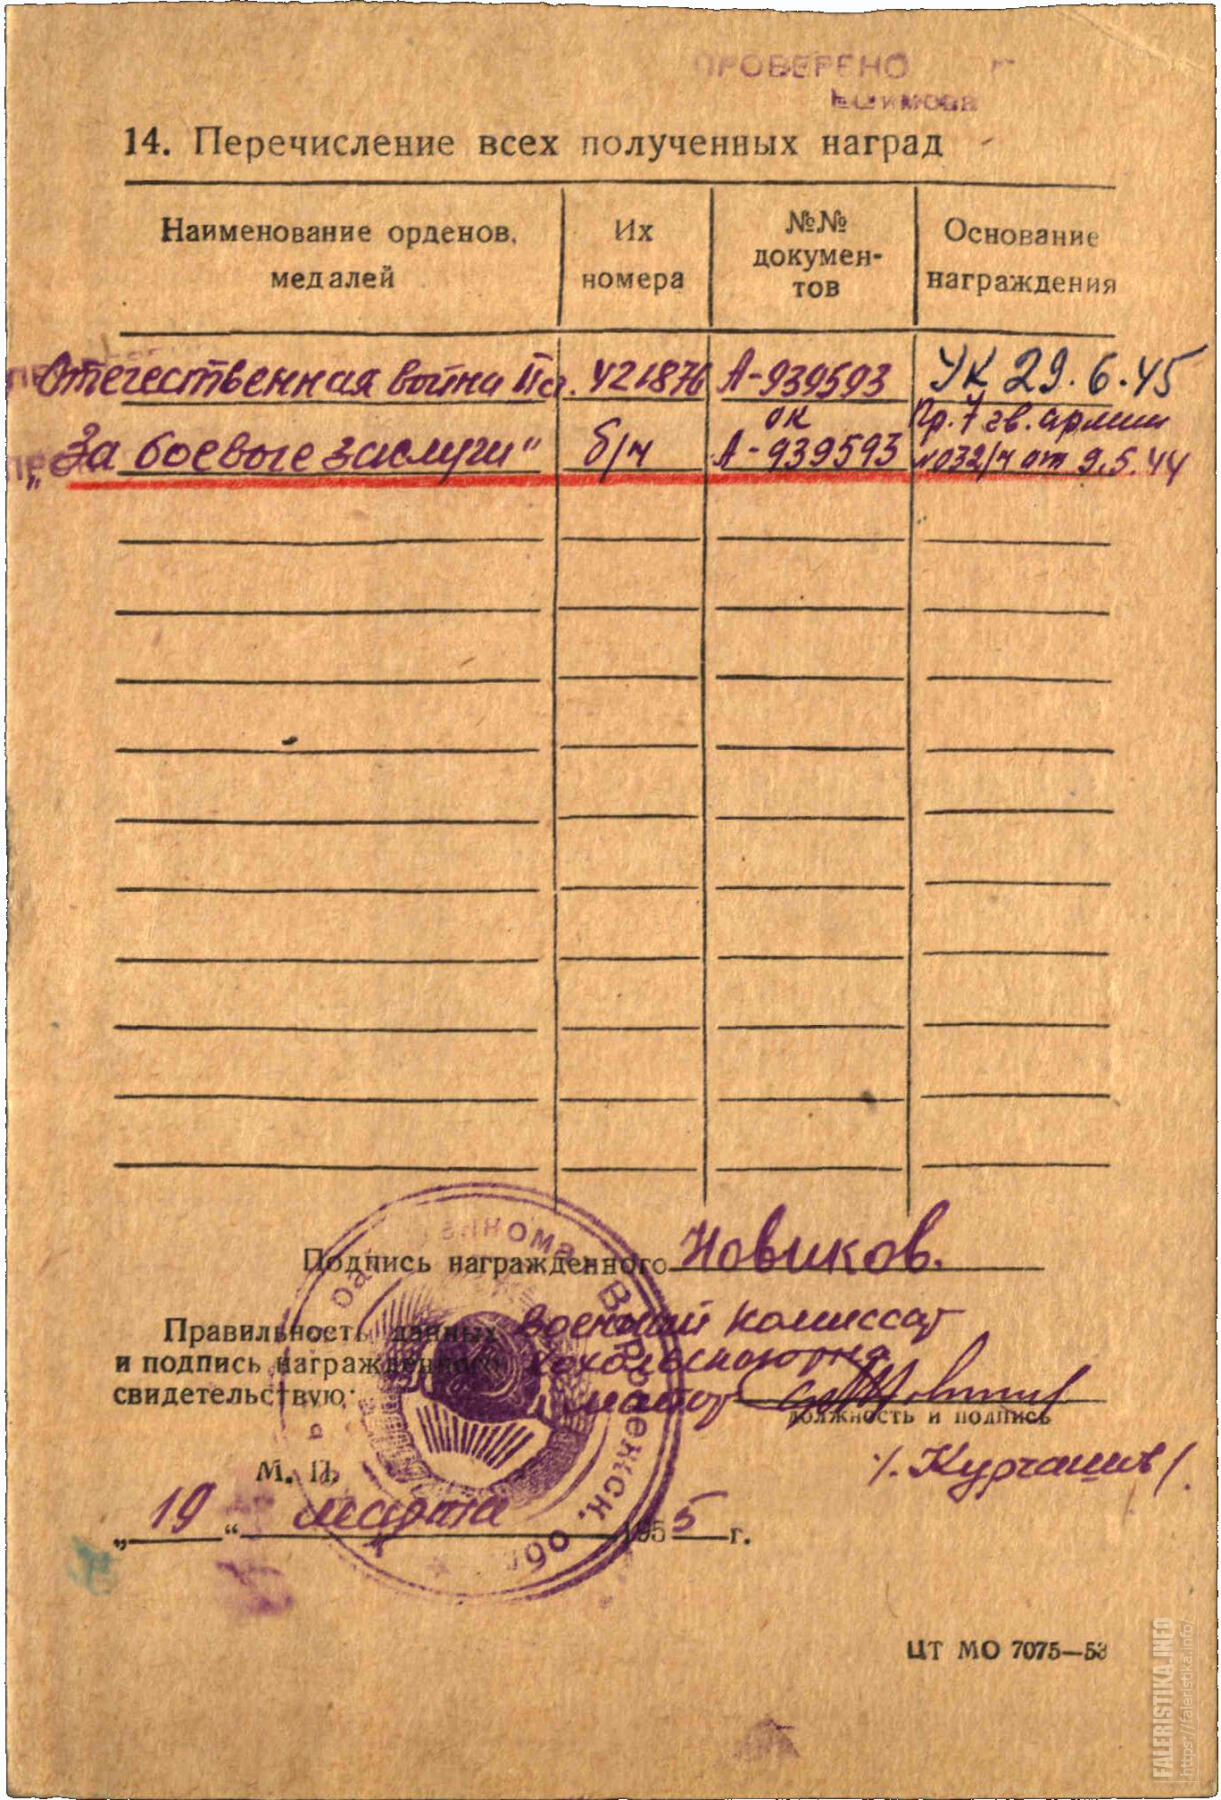 ПРОВЕРЕНО
14. Перечисление всех полученных наград
Наименование орденов, медалей
Их номера
№№ докумен-тов
Основание награждения
Отечественная война II ст. 421876 А-939593 УК 29.6.45
ок Пр. 7 гв. армии
„За боевые заслуги" б/н А-939593 №032/н от 9.5.44
Подпись награжденного Новиков.
Правильность данных военный комиссар
и подпись награжденного Хохольского р-на
свидетельствую: майор
должность и подпись
М. П.
„19" марта 1955 г.
Воронежск. обл.
ЦТ МО 7075—53
FALERISTIKA.INFO
https://faleristika.info/